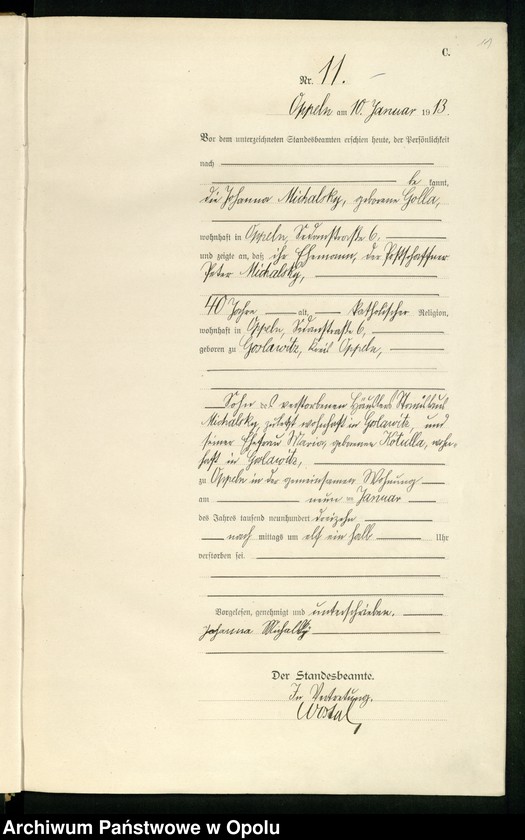 C.
Nr. 11.
Oppeln am 10. Januar 1913.
Vor dem unterzeichneten Standesbeamten erschien heute, der Persönlichkeit
nach
be kannt,
die Johanna Michalsky, geborene Golla,
wohnhaft in Oppeln, Sedanstraße 6.
und zeigte an, daß ihr Ehemann, der Postschaffner
Peter Michalsky,
40 Jahre alt, katholischer Religion,
wohnhaft in Oppeln, Sedanstraße 6,
geboren zu Goslawitz, Kreis Oppeln,
Sohn des verstorbenen Häuslers Stanislaus
Michalsky, zuletzt wohnhaft in Goslawitz, und
seiner Ehefrau Maria, geborene Kotulla, wohn-
haft in Goslawitz,
zu Oppeln in der gemeinsamen Wohnung
am neun ten Januar
des Jahres tausend neunhundert dreizehn
nach mittags um elf ein halb Uhr
verstorben sei.
Vorgelesen, genehmigt und unterschrieben.
Johanna Michalsky
Der Standesbeamte.
In Vertretung.
Wostal
Archiwum Państwowe w Opolu